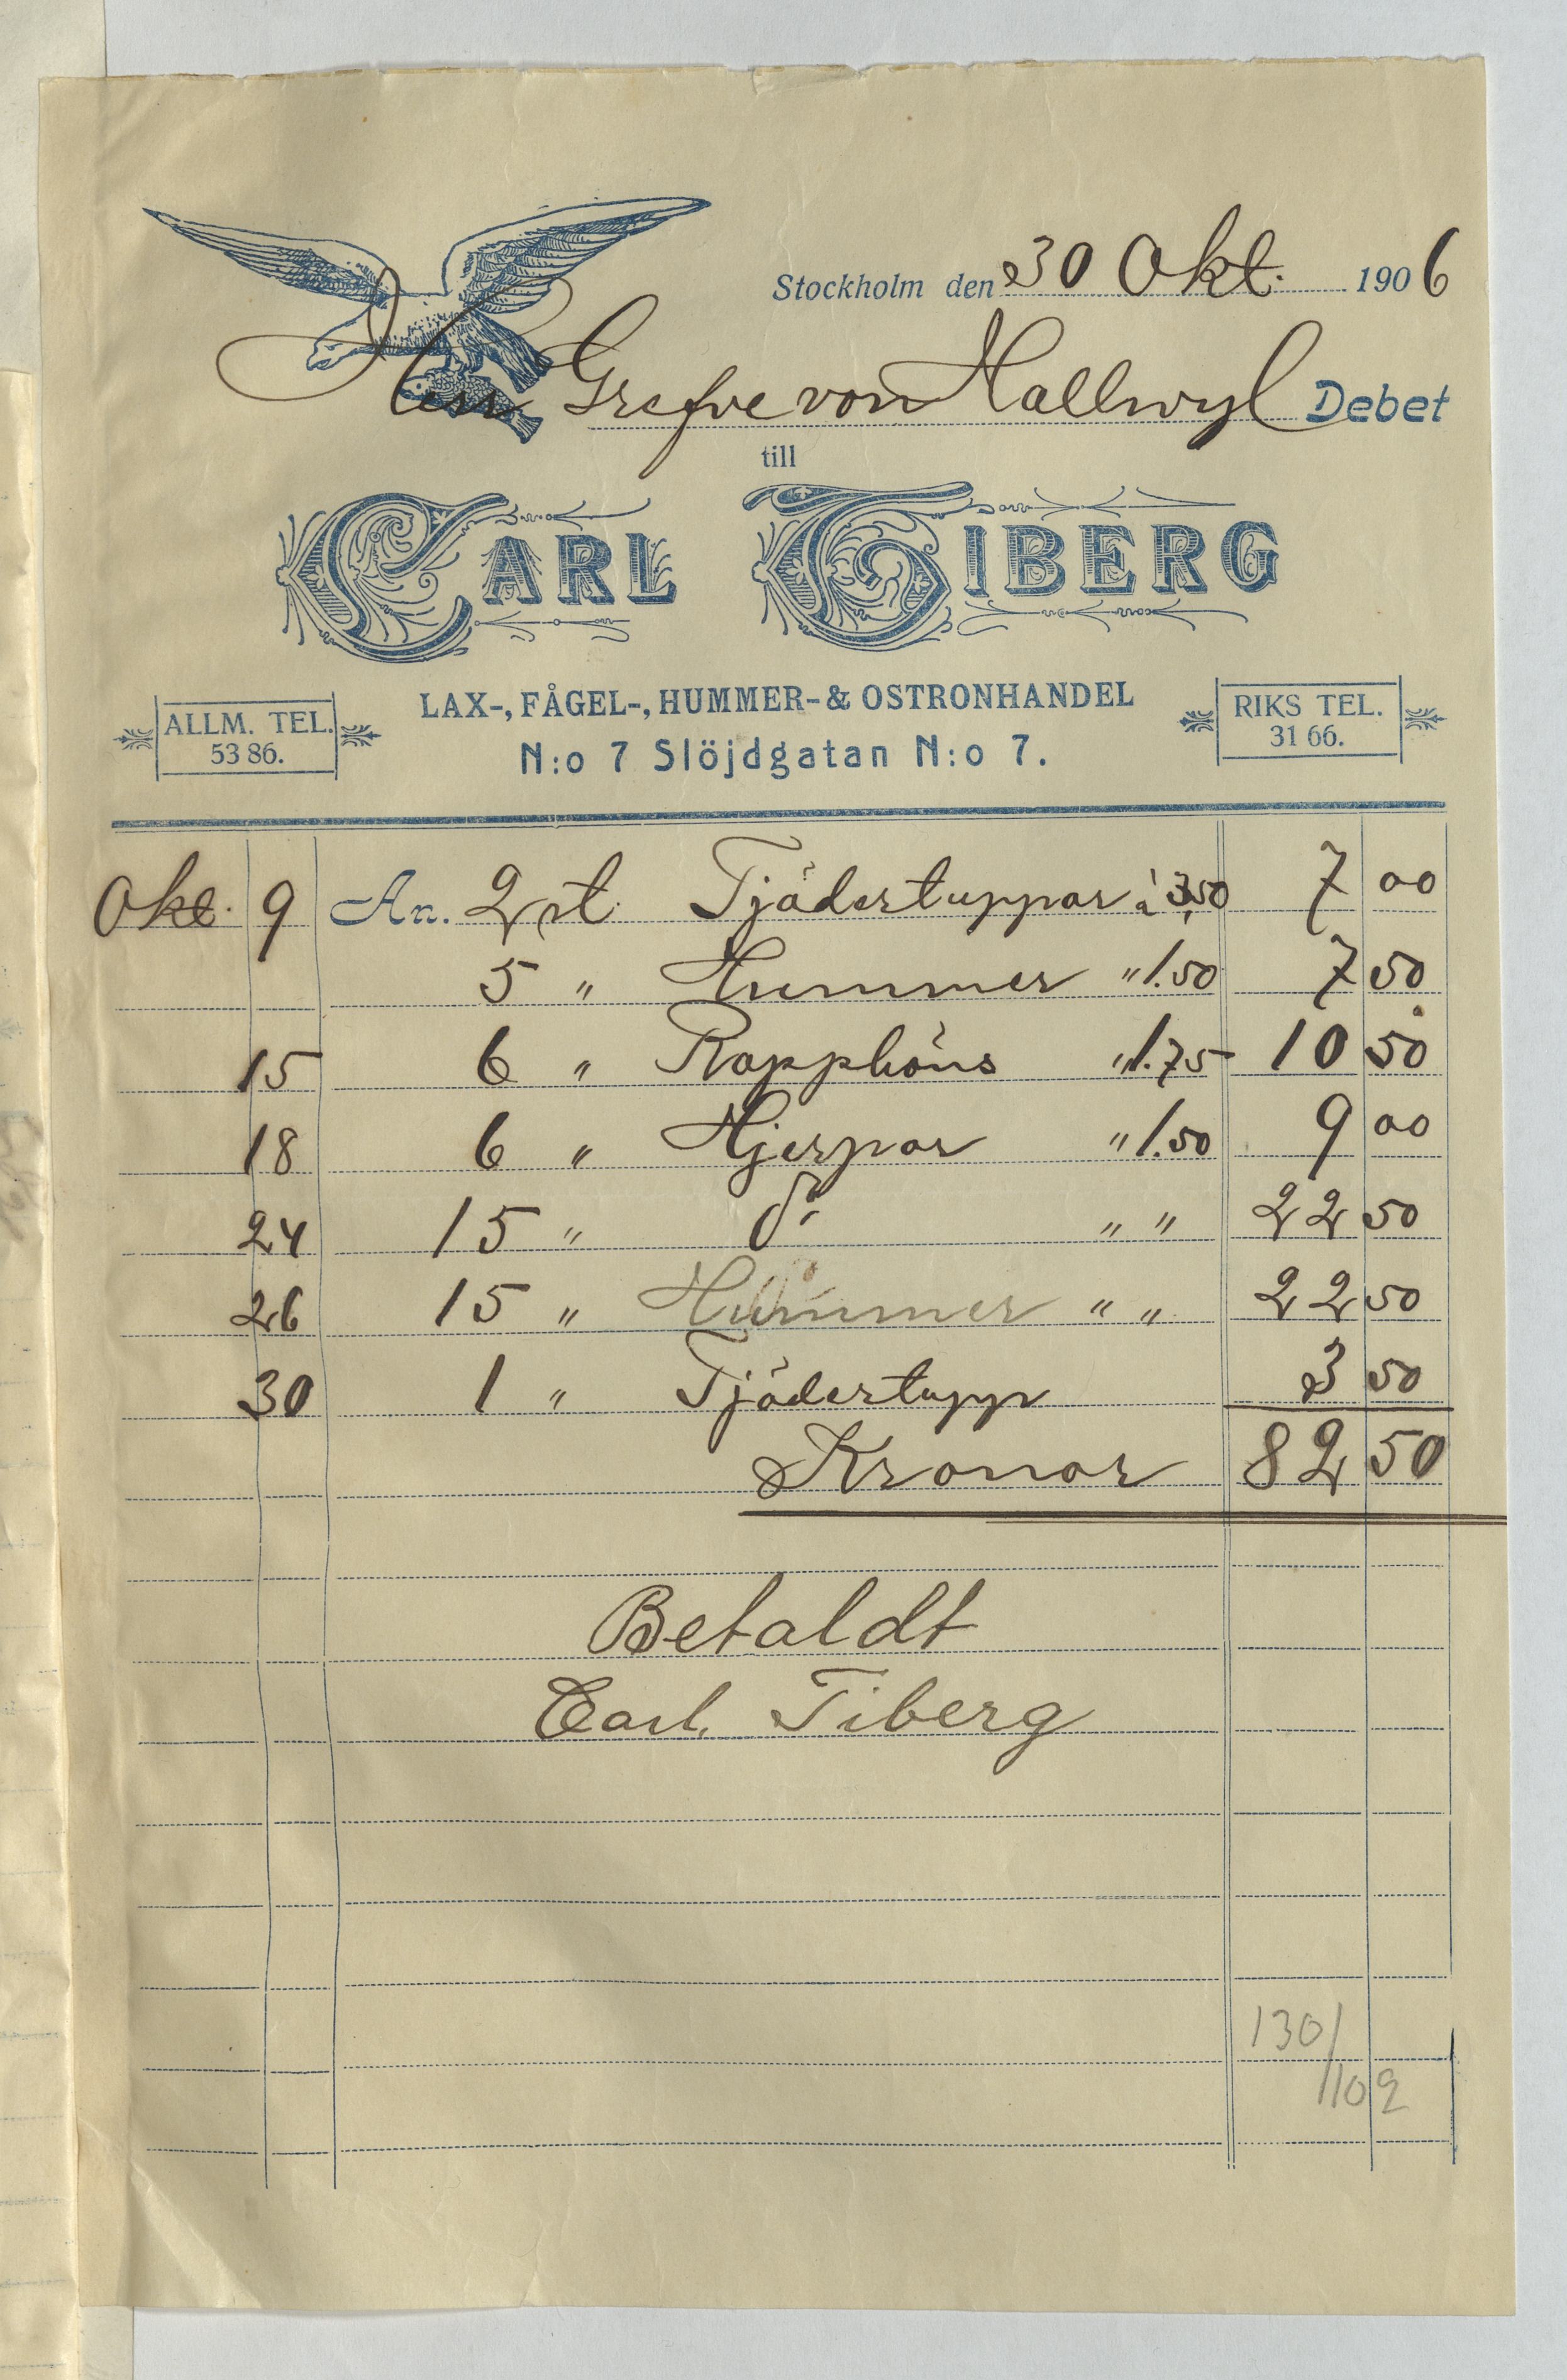 Stockholm den 30 Okt. 1906
Herr Grefve von Hallwyl Debet
till
CARL TIBERG
LAX-, FÅGEL-, HUMMER- & OSTRONHANDEL
ALLM. TEL. 53 86.
N:o 7 Slöjdgatan N:o 7.
RIKS TEL. 31 66.
Okt. 9 An. 2 st. Tjädertuppar à 3,50 7 00
5 " Hummer " 1.50 7 50
15 6 " Rapphöns " 1.75 10 50
18 6 " Hjerpar " 1.50 9 00
24 15 " d:o " " 22 50
26 15 " Hummer " " 22 50
30 1 " Tjädertupp 3 50
Kronor 82 50
Betaldt
Carl Tiberg
130/
102